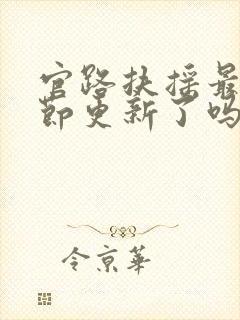 官路扶摇最
节更新了吗
令京华